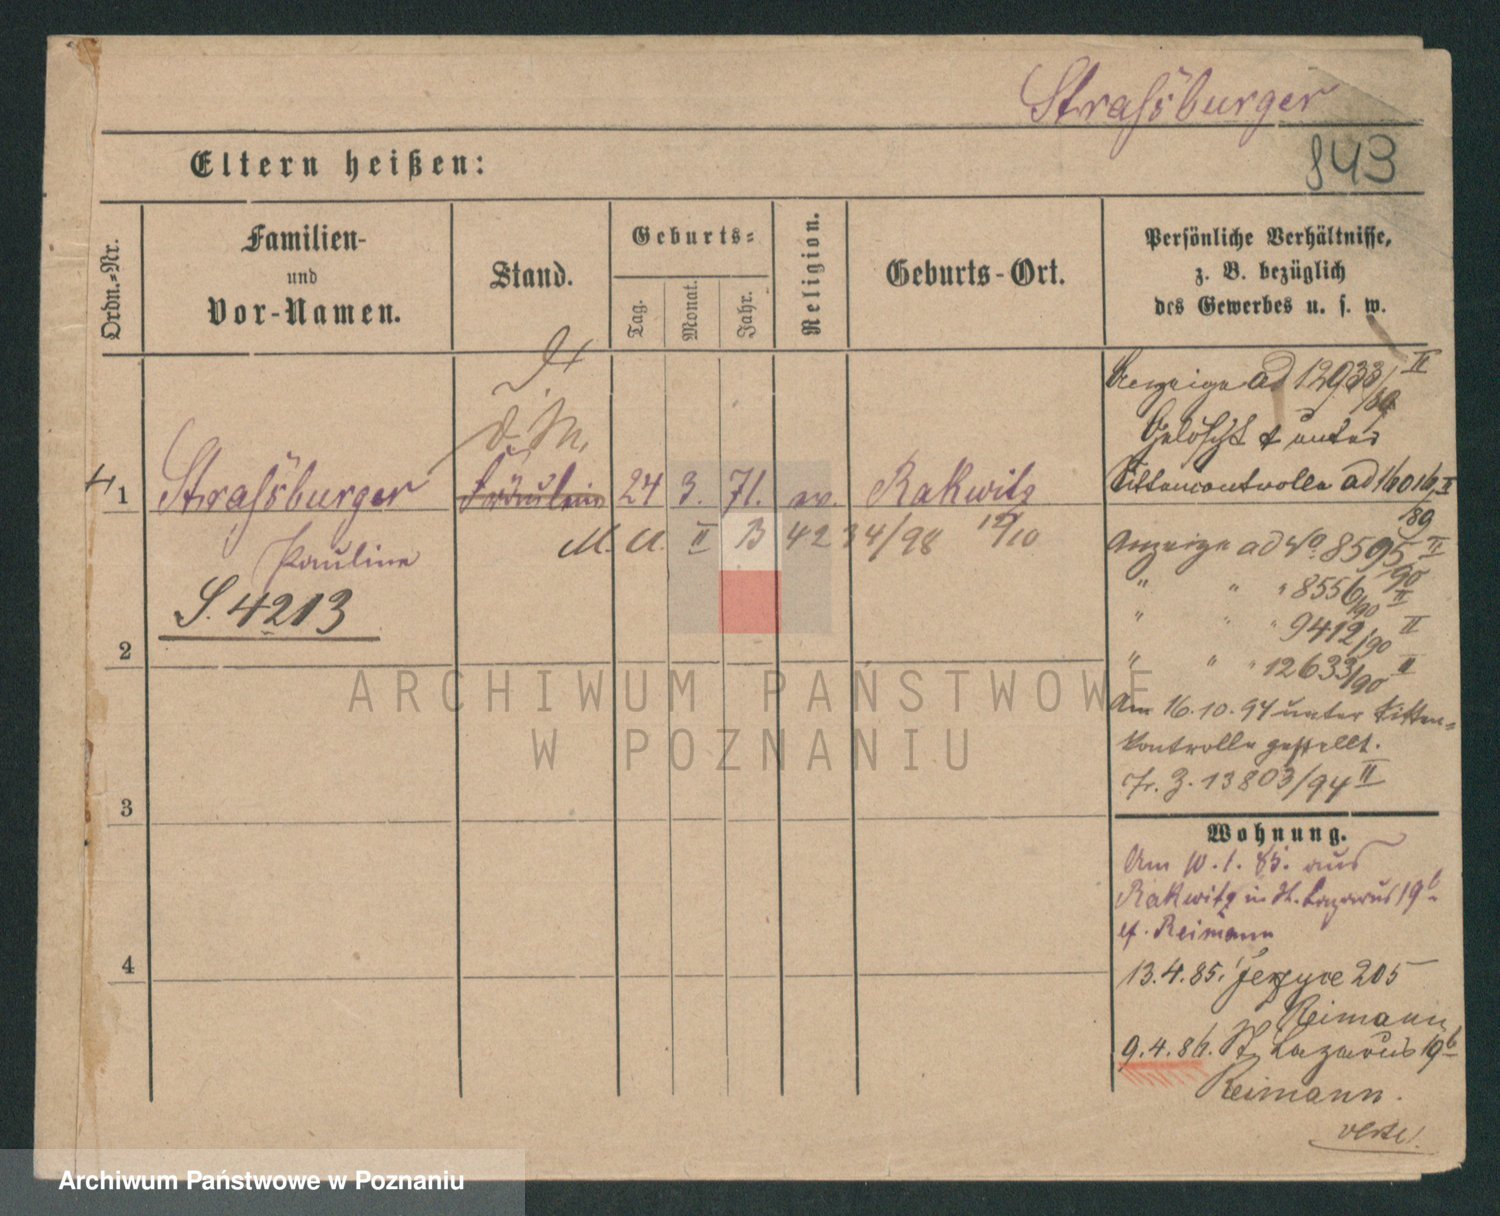 Strassburger
843
Eltern heißen:
Ordn.-Nr.
Familien-
und
Vor-Namen.
Stand.
Geburts-
Tag.
Monat.
Jahr.
Religion.
Geburts-Ort.
Persönliche Verhältnisse,
z. B. bezüglich
des Gewerbes u. s. w.
D. M.
1 Strassburger Fräulein 24 3. 71. ev. Rakwitz
Pauline
M. U. II B 4234/98 12/10
S. 4213
2
3
4
Anzeige ad 12933/89 II
Gelöscht unter
Sittencontrolle ad 16016/89 II
Anzeige ad No 8595/90 II
" " " 8556/90 II
" " " 9412/90 II
" " " 12633/90 II
Am 16.10.94 unter Sitten=
kontrolle gestellt.
13803/94 II
Wohnung.
Am 10.1.85. aus
Rakwitz in St. Lazarus 19b
Reimann
13.4.85. Jerzyce 205
Reimann
9.4.86. St. Lazarus 19b
Reimann.
verte!
ARCHIWUM PAŃSTWOWE
W POZNANIU
Archiwum Państwowe w Poznaniu